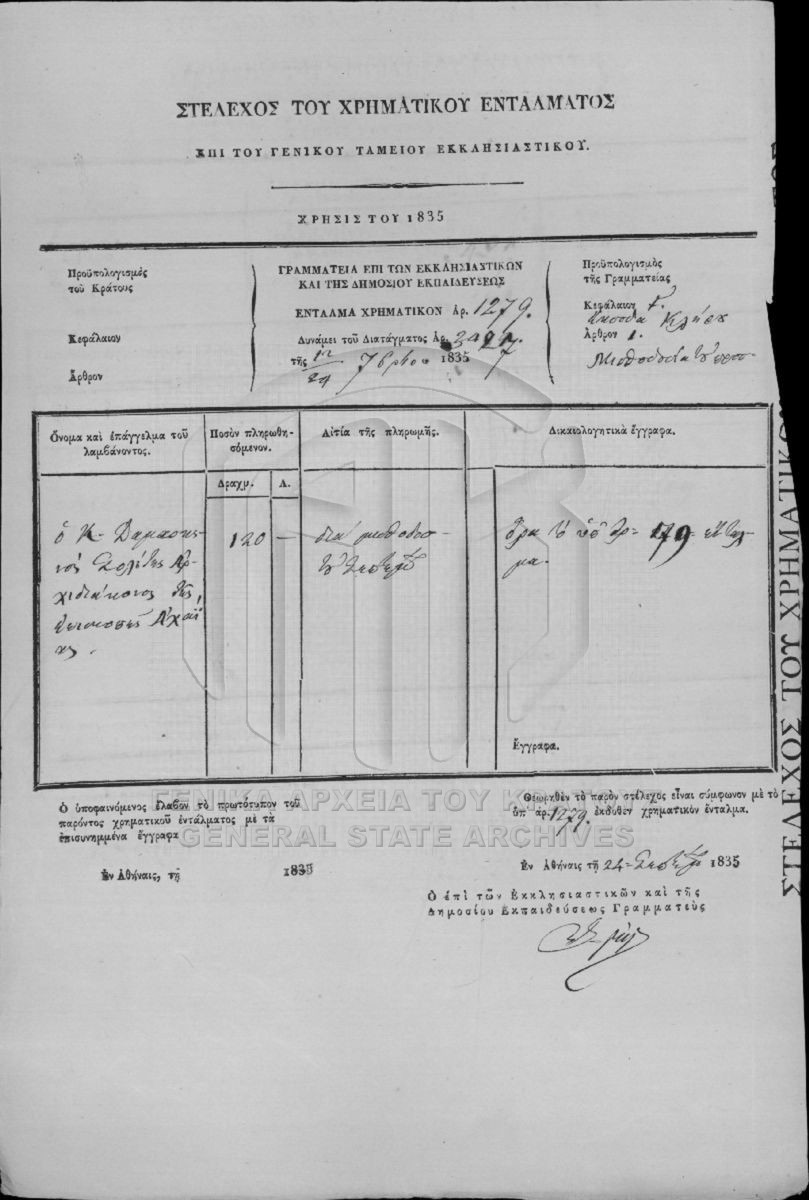 ΣΤΕΛΕΧΟΣ ΤΟΥ ΧΡΗΜΑΤΙΚΟΥ ΕΝΤΑΛΜΑΤΟΣ
ΕΠΙ ΤΟΥ ΓΕΝΙΚΟΥ ΤΑΜΕΙΟΥ ΕΚΚΛΗΣΙΑΣΤΙΚΟΥ.
ΧΡΗΣΙΣ ΤΟΥ 1835
Προϋπολογισμὸς
τοῦ Κράτους
Κεφάλαιον
Ἄρθρον
ΓΡΑΜΜΑΤΕΙΑ ΕΠΙ ΤΩΝ ΕΚΚΛΗΣΙΑΣΤΙΚΩΝ
ΚΑΙ ΤΗΣ ΔΗΜΟΣΙΟΥ ΕΚΠΑΙΔΕΥΣΕΩΣ
ΕΝΤΑΛΜΑ ΧΡΗΜΑΤΙΚΟΝ ἀρ. 1279.
Δυνάμει τοῦ Διατάγματος ἀρ.
τῆς 12/24 7βρίου 1835
Προϋπολογισμὸς
τῆς Γραμματείας
Κεφάλαιον
Κλήρου
Ἄρθρον 1.
Ὄνομα καὶ ἐπάγγελμα τοῦ
λαμβάνοντος.
Ποσὸν πληρωθη-
σόμενον.
Αἰτία τῆς πληρωμῆς.
Δικαιολογητικὰ ἔγγραφα.
Δραχμ. Λ.
ὁ Κ. Δαμασκη-
νὸς Ἀρ-
χιδιάκονος τῆς
Ἐπισκοπῆς Ἀχαΐ
ας.
120 —
διὰ μισθοδοσ-
Σεπτεμβ
ὅρα τὸ ὑπ ἀρ= 179= ἔνταλ-
μα.
Ἔγγραφα.
Ὁ ὑποφαινόμενος ἔλαβον τὸ πρωτότυπον τοῦ
παρόντος χρηματικοῦ ἐντάλματος μὲ τὰ
ἐπισυνημμένα ἔγγραφα
Ἐν Ἀθήναις, τῇ 1835
Θεωρηθὲν τὸ παρὸν στέλεχος εἶναι σύμφωνον μὲ τὸ
ὑπ᾽ ἀρ. 1279. ἐκδοθὲν χρηματικὸν ἔνταλμα.
Ἐν Ἀθήναις τῇ 24 Σεπτεμβ 1835
Ὁ ἐπὶ τῶν Ἐκκλησιαστικῶν καὶ τῆς
Δημοσίου Ἐκπαιδεύσεως Γραμματεὺς
ΣΤΕΛΕΧΟΣ ΤΟΥ ΧΡΗΜΑΤΙΚΟΥ
ΓΕΝΙΚΑ ΑΡΧΕΙΑ ΤΟΥ Κ
GENERAL STATE ARCHIVES